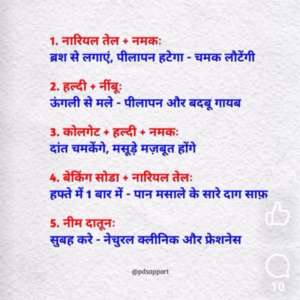 1. नारियल तेल + नमकः
ब्रश से लगाएं, पीलापन हटेगा - चमक लौटेंगी
2. हल्दी + नींबूः
ऊंगली से मले - पीलापन और बदबू गायब
3. कोलगेट + हल्दी + नमकः
दांत चमकेंगे, मसूड़े मज़बूत होंगे
4. बेकिंग सोडा + नारियल तेलः
हफ्ते में 1 बार में - पान मसाले के सारे दाग साफ़
5. नीम दातूनः
सुबह करे - नेचुरल क्लीनिक और फ्रेशनेस
@pdsapport
10